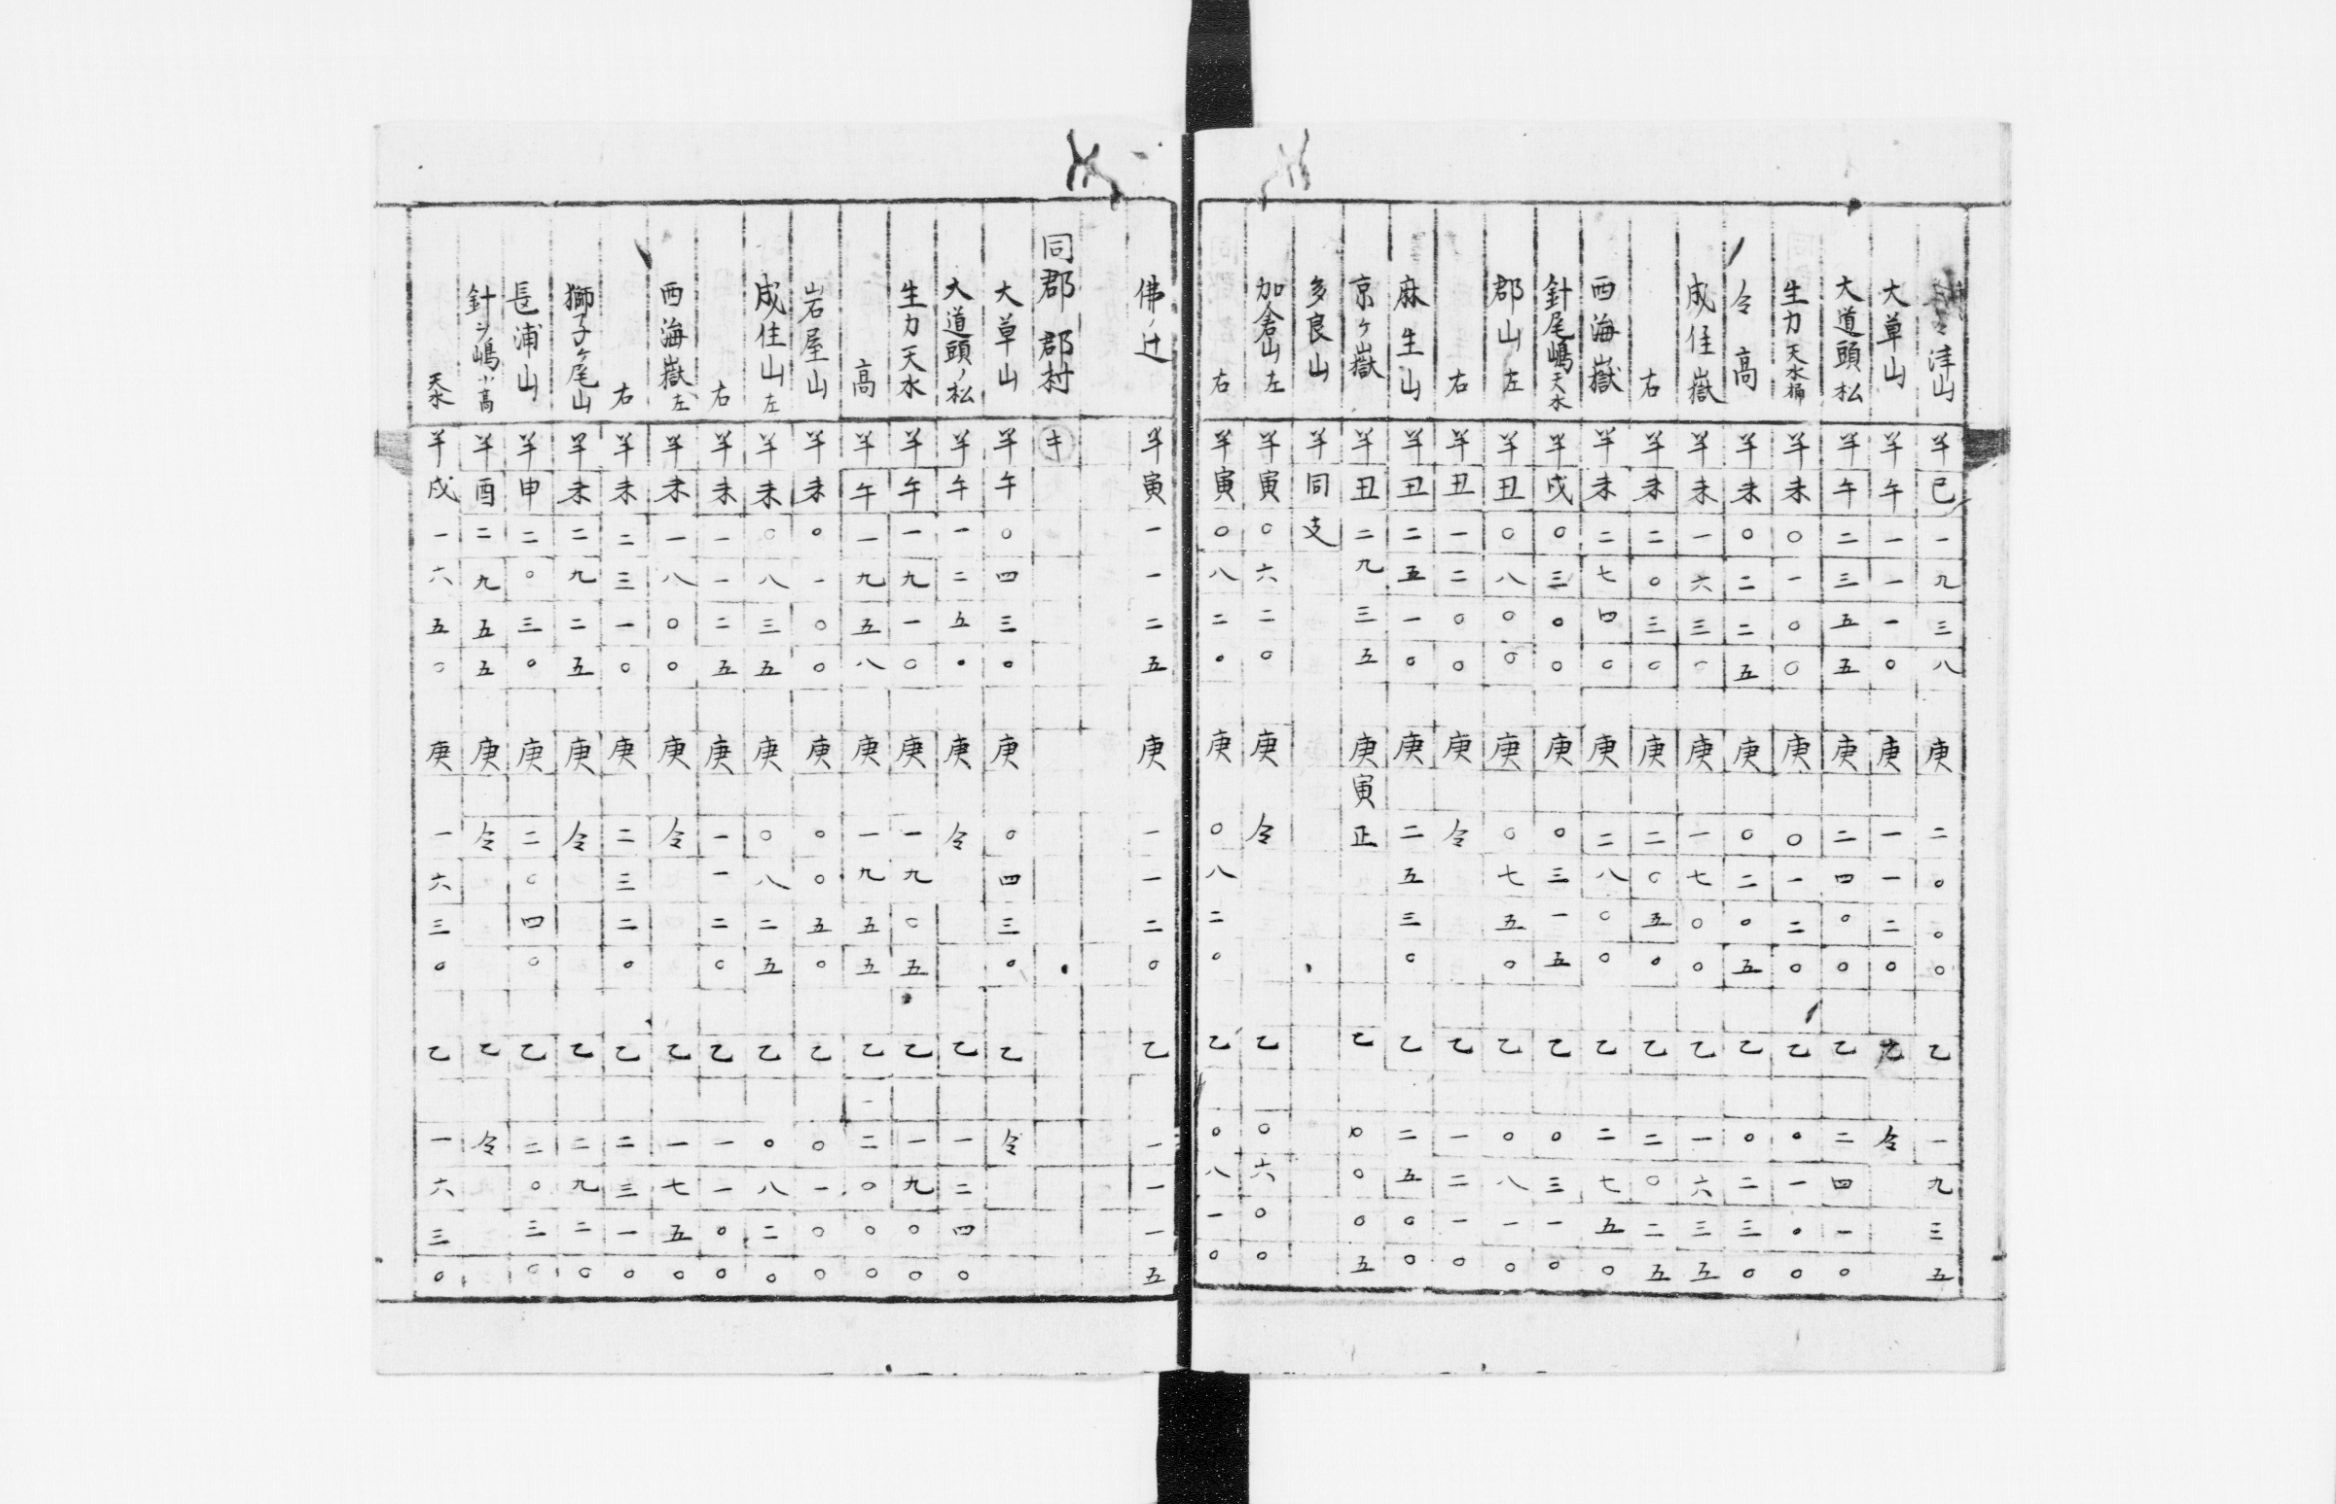 津山 羊 巳 一 九 三 八 庚 二 〇 〇 〇 乙 一 九 三 五
大草山 羊 午 一 一 一 〇 庚 一 一 二 〇 乙 仝
大道頭松 羊 午 二 三 五 五 庚 二 四 〇 〇 乙 二 四 一 〇
生力天水桶 羊 未 〇 一 〇 〇 庚 〇 一 二 〇 乙 〇 一 〇 〇
仝 高 羊 未 〇 二 二 五 庚 〇 二 〇 五 乙 〇 二 三 〇
成住嶽 羊 未 一 六 三 〇 庚 一 七 〇 〇 乙 一 六 三 五
右 羊 未 二 〇 三 〇 庚 二 〇 五 〇 乙 二 〇 二 五
西海嶽 羊 未 二 七 四 〇 庚 二 八 〇 〇 乙 二 七 五 〇
針尾嶋天水 羊 戌 〇 三 〇 〇 庚 〇 三 一 五 乙 〇 三 一 〇
郡山左 羊 丑 〇 八 〇 〇 庚 〇 七 五 〇 乙 〇 八 一 〇
右 羊 丑 一 二 〇 〇 庚 仝 乙 一 二 一 〇
麻生山 羊 丑 二 五 一 〇 庚 二 五 三 〇 乙 二 五 〇 〇
京ケ嶽 羊 丑 二 九 三 五 庚 寅 正 乙 〇 〇 〇 五
多良山 羊 同 支
加倉山左 羊 寅 〇 六 二 〇 庚 仝 乙 〇 六 〇 〇
右 羊 寅 〇 八 二 〇 庚 〇 八 二 〇 乙 〇 八 一 〇
佛ノ辻 羊 寅 一 一 二 五 庚 一 一 二 〇 乙 一 一 一 五
同郡 郡村 キ
大草山 羊 午 〇 四 三 〇 庚 〇 四 三 〇 乙 仝
大道頭ノ松 羊 午 一 二 五 〇 庚 仝 乙 一 二 四 〇
生力天水 羊 午 一 九 一 〇 庚 一 九 〇 五 乙 一 九 〇 〇
高 羊 午 一 九 五 八 庚 一 九 五 五 乙 二 〇 〇 〇
岩屋山 羊 未 〇 一 〇 〇 庚 〇 〇 五 〇 乙 〇 一 〇 〇
成住山左 羊 未 〇 八 三 五 庚 〇 八 二 五 乙 〇 八 二 〇
右 羊 未 一 一 二 五 庚 一 一 二 〇 乙 一 一 〇 〇
西海嶽左 羊 未 一 八 〇 〇 庚 仝 乙 一 七 五 〇
右 羊 未 二 三 一 〇 庚 二 三 二 〇 乙 二 三 一 〇
獅子ケ尾山 羊 未 二 九 二 五 庚 仝 乙 二 九 二 〇
長浦山 羊 申 二 〇 三 〇 庚 二 〇 四 〇 乙 二 〇 三 〇
針ヲ嶋小高 羊 酉 二 九 五 五 庚 仝 乙 仝
天水 羊 戌 一 六 五 〇 庚 一 六 三 〇 乙 一 六 三 〇